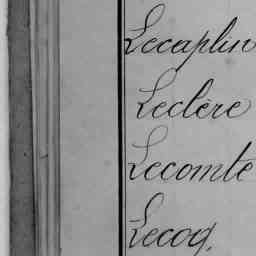 Lecaplin
Leclère
Lecomte
Lecoq.